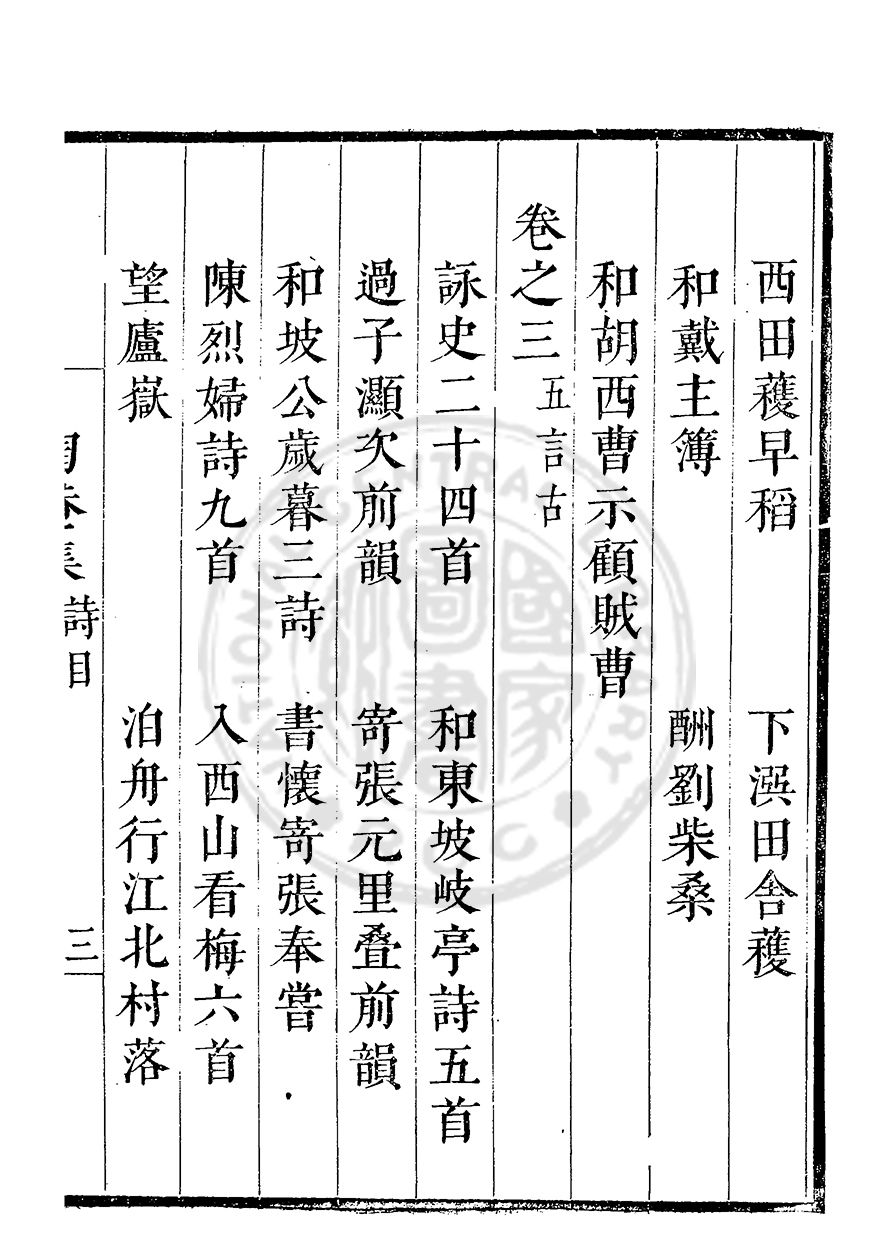 西田穫早稻　下潠田舍穫
和戴主簿　酬劉柴桑
和胡西曹示顧賊曹
卷之三　五言古
詠史二十四首　和東坡岐亭詩五首
過子灝次前韻　寄張元里叠前韻
和坡公歲暮三詩　書懷寄張奉嘗
陳烈婦詩九首　入西山看梅六首
望廬嶽　泊舟行江北村落
詩目　三
國家圖書
NATIONAL CENTRAL LIBRARY